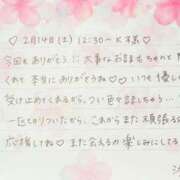 ♡ 2月14日(土) 12:30〜 K様♡
今回もありがとう♡ 大事なお話もちゃんと
くれて本当にありがとうね♡♡ いつも優し
受け止めてくれるから、つい色々話しちゃう…
一匹とりついちゃったから、これからまた頑張る
応援しててね♡ また会えるの楽しみにしてる